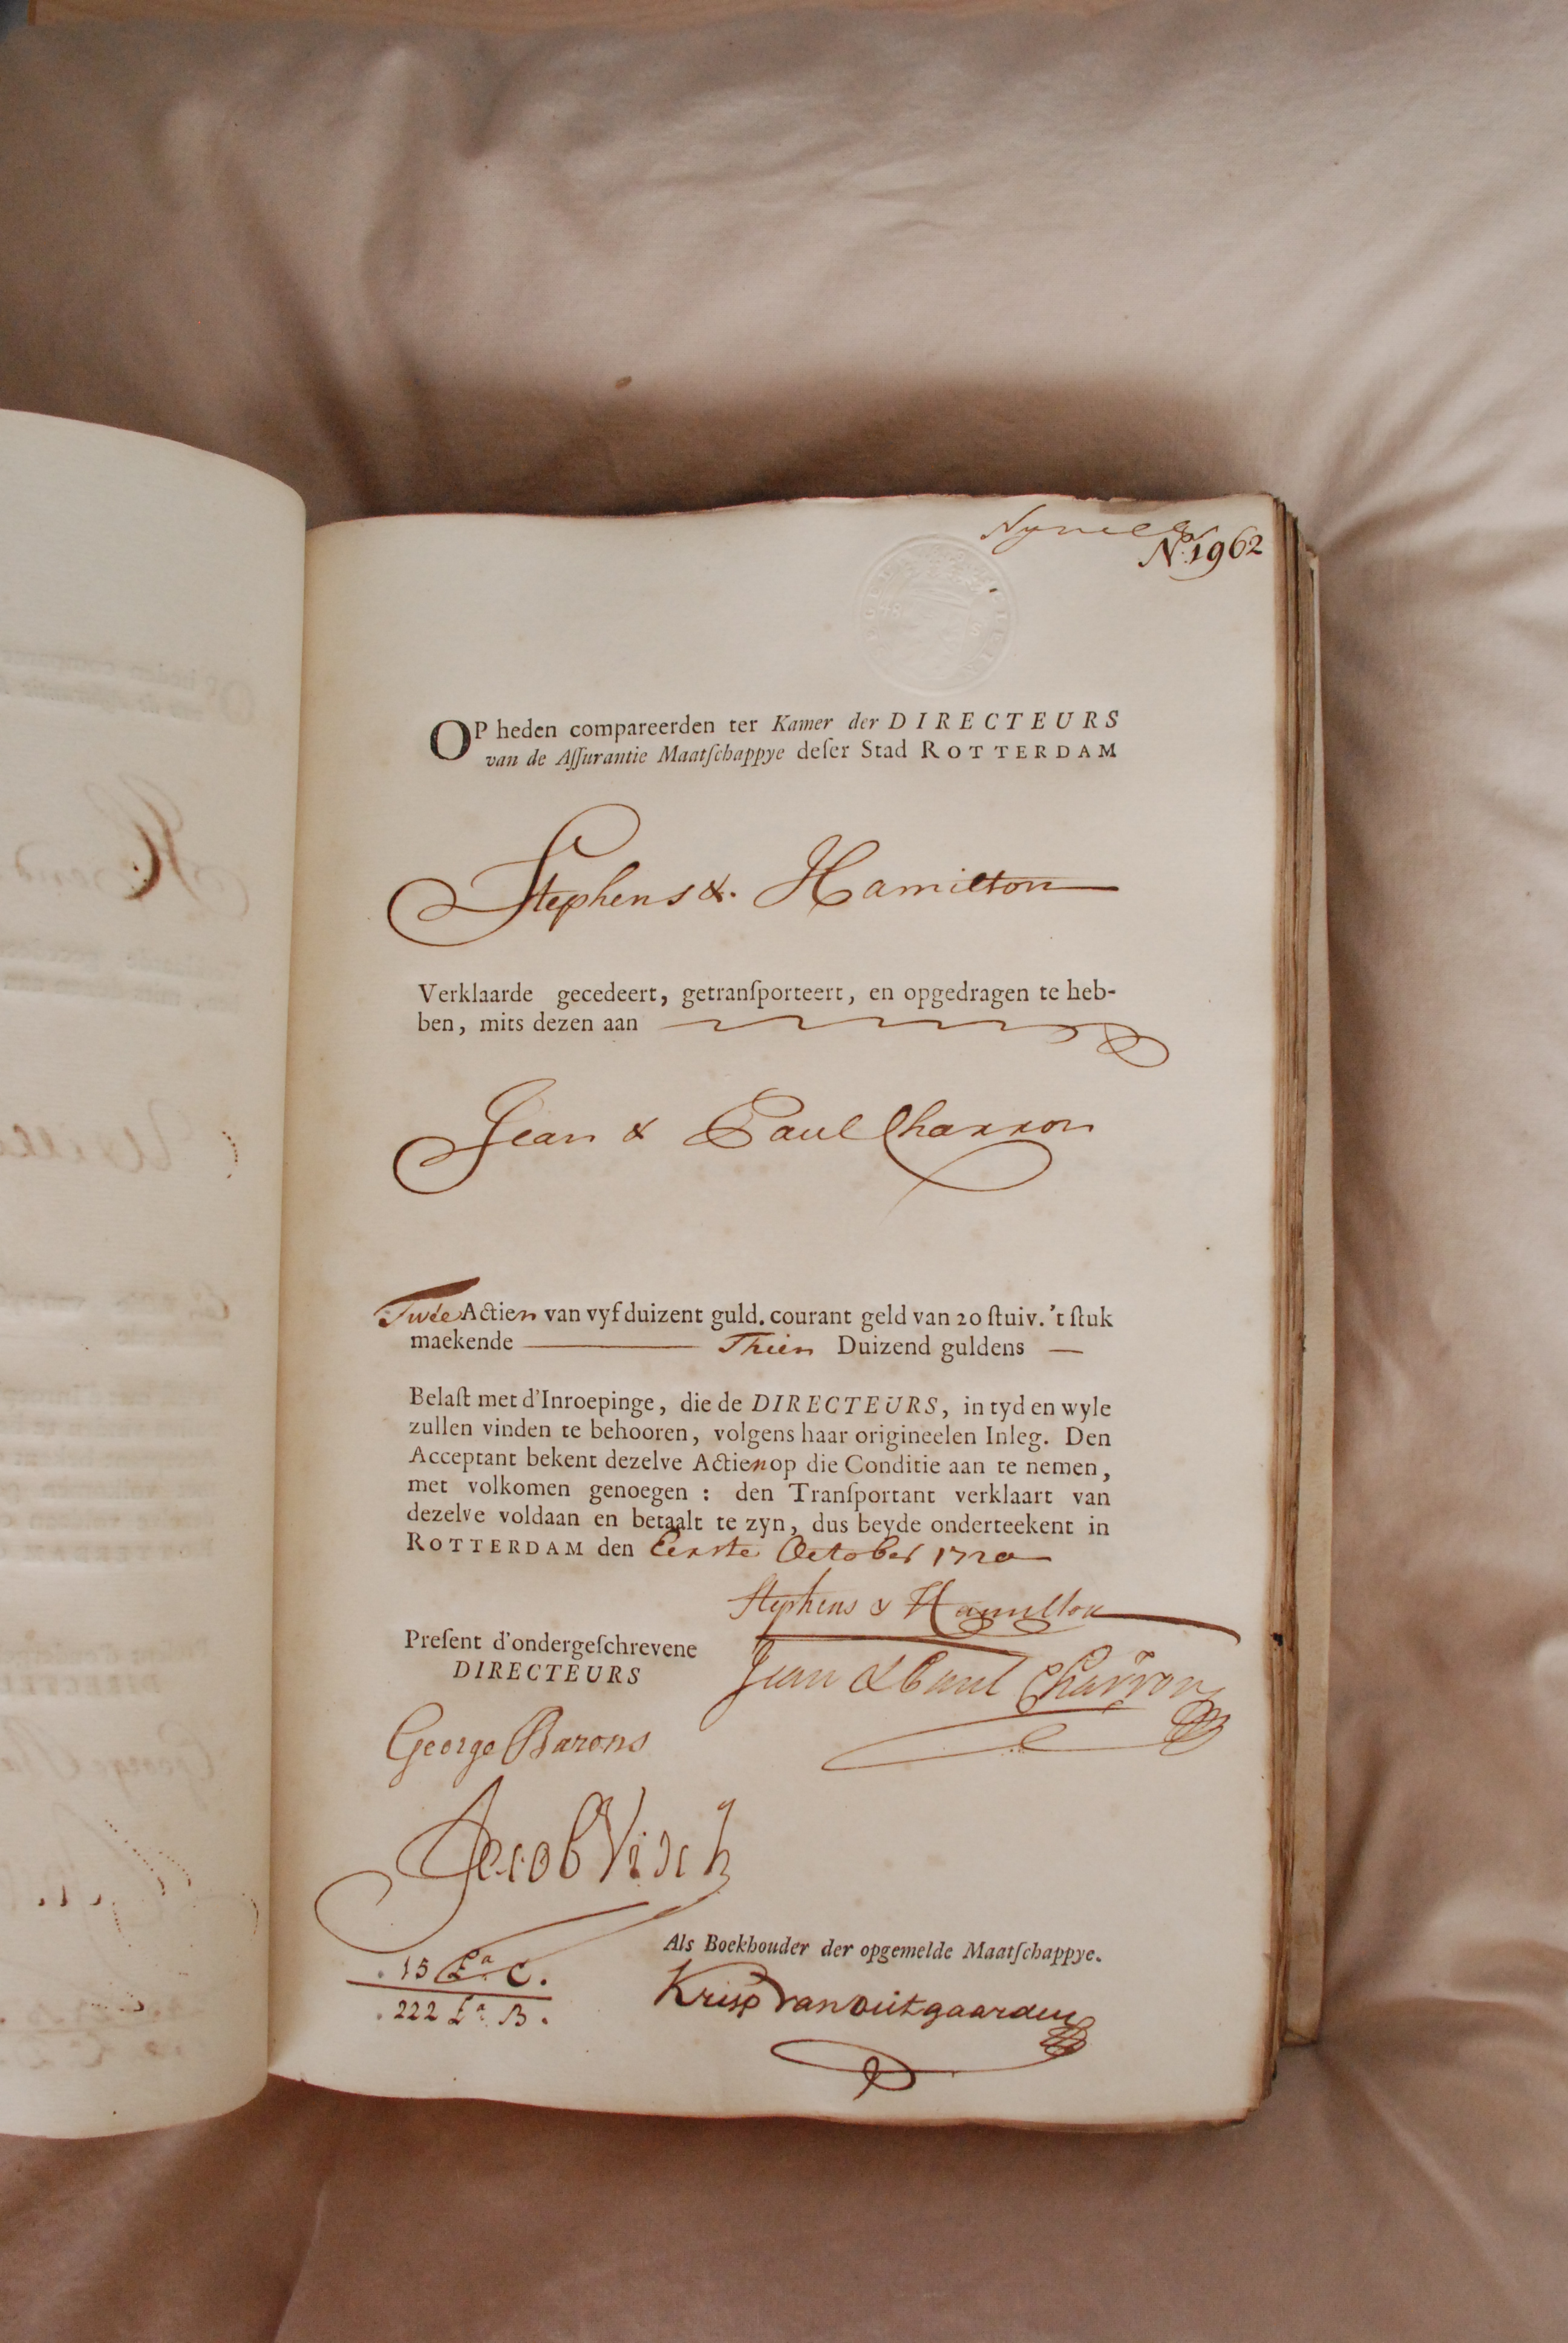 N.º 1962
OP heden compareerden ter Kamer der DIRECTEURS
van de Aſſurantie Maatſchappye deſer Stad ROTTERDAM
Stephens &. Hamilton
Verklaarde gecedeert, getranſporteert, en opgedragen te heb-
ben, mits dezen aan
Jean & Paul Charron
Twee Actien van vyf duizent guld. courant geld van 20 ſtuiv. 't ſtuk
maekende Thien Duizend guldens
Belaſt met d'Inroepinge, die de DIRECTEURS, in tyd en wyle
zullen vinden te behooren, volgens haar origineelen Inleg. Den
Acceptant bekent dezelve Actien op die Conditie aan te nemen,
met volkomen genoegen : den Tranſportant verklaart van
dezelve voldaan en betaalt te zyn, dus beyde onderteekent in
ROTTERDAM den Eerste October 1720
Stephens & Hamilton
Preſent d'ondergeſchrevene
DIRECTEURS
Jean & Paul Charron
George Barons
Jacob Visch
Als Boekhouder der opgemelde Maatſchappye.
15 La C.
222 La B.
Krisp van outgaarden